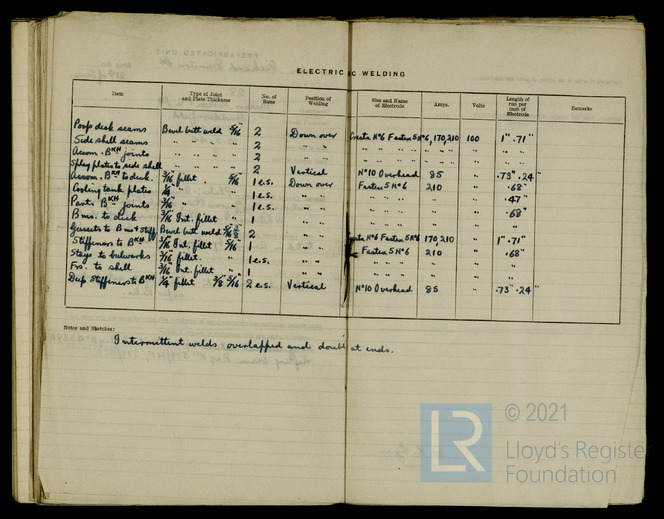 ELECTRIC WELDING
Item | Type of Joint and Plate Thickness | No. of Runs | Position of Welding | Size and Name of Electrode | Amps. | Volts | Length of run per inch of Electrode | Remarks
Poop deck seams | Bevel butt weld 5/16 | 2 | Down over | N°6 Fastex 5 N°6, | 170,210 | 100 | 1" .71"
Side shell seams | " " " " | 2 | " "
Accom. BKH joints | " " " " | 2 | " "
Splay plates to side shell | " " " " | 2 | Vertical | N°10 Overhead | 85 | " | .73" .24"
Accom. BKH to deck. | 3/16 fillet 5/16 | 1 e.s. | Down over | Fastex 5 N°6 | 210 | " | .68"
Cooling tank plates | 1/4 " " | 1 e.s. | " " | " " | " | " | .47"
Part. BKH joints | 3/16 " " | 1 e.s. | " " | " " | " | " | .68"
Bms. to deck | 3/16 Int. fillet " | 1 | " "
Gussets to Bms + Stiff | Bevel butt weld | 2 | " " | N°6 Fastex 5 N°6 | 170,210 | " | 1" .71"
Stiffeners to BKH | 3/16 Int. fillet 5/16 | 1 | " " | Fastex 5 N°6 | 210 | " | .68"
Stays to bulworks | 3/16 fillet. " | 1 e.s. | " "
Frs. to shell | 3/16 Int. fillet " | 1 | " "
Deep Stiffeners to BKH | 1/4 fillet 3/8 5/16 | 2 e.s. | Vertical | N°10 Overhead | 85 | " | .73" .24"
Notes and Sketches:
Intermittent welds overlapped and doubl at ends.
LR
© 2021
Lloyd's Register
Foundation